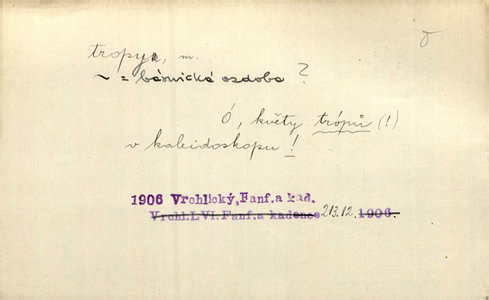 tropy, m.
~ = básnická ozdoba ?
Ó, květy trópů (!)
v kaleidoskopu!
1906 Vrchlický, Fanf. a kad.
Vrchl. LVI. Fanf. a kadence 213.12. 1906.